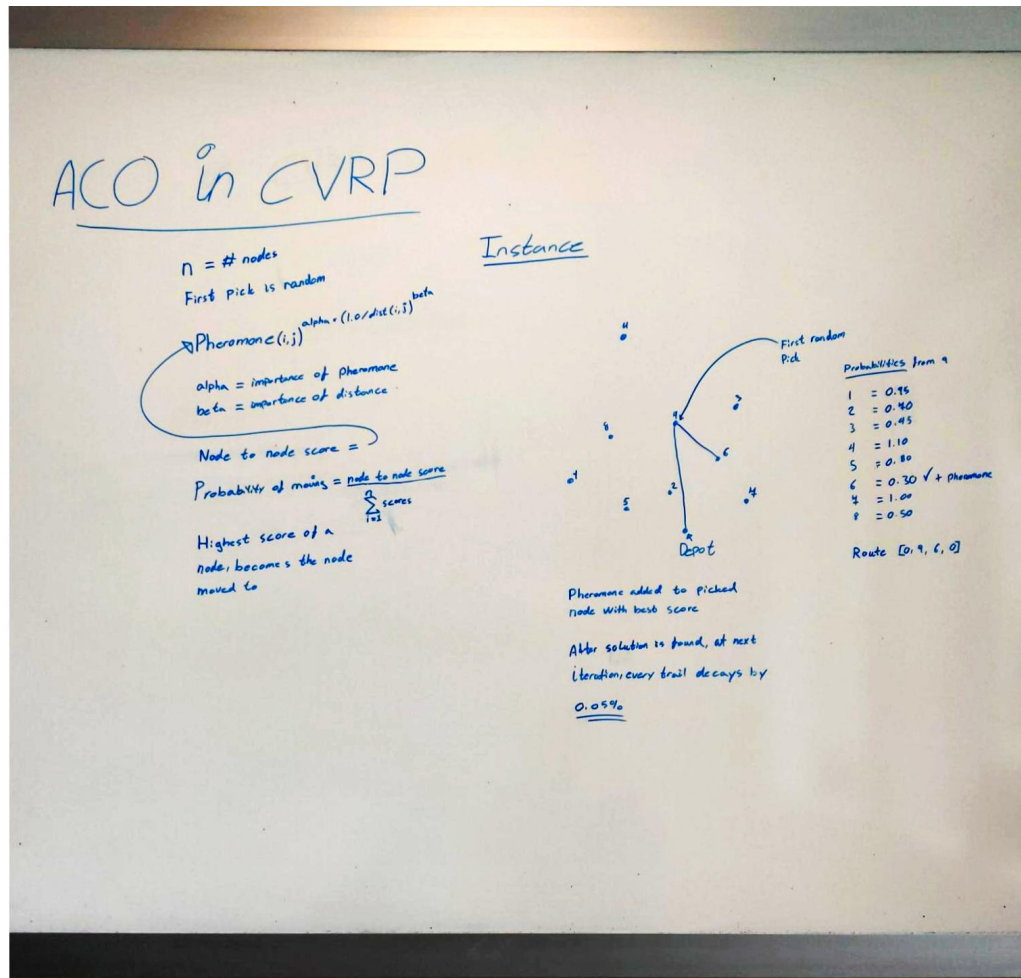 ACO in CVRP
n = # nodes
First pick is random
Pheromone(i,j)^alpha * (1.0/dist(i,j)^beta
alpha = importance of pheromone
beta = importance of distance
Node to node score =
Probability of moving = node to node score
n
∑ scores
i=1
Highest score of a
node, becomes the node
moved to
Instance
First random
Pick
3
8
6
2
5
7
Depot
Pheromone added to picked
node with best score
After solution is found, at next
iteration, every trail decays by
0.05%
Probabilities from 9
1 = 0.95
2 = 0.40
3 = 0.45
4 = 1.10
5 = 0.80
6 = 0.30 ✓ + pheromone
7 = 1.00
8 = 0.50
Route [0, 9, 6, 0]